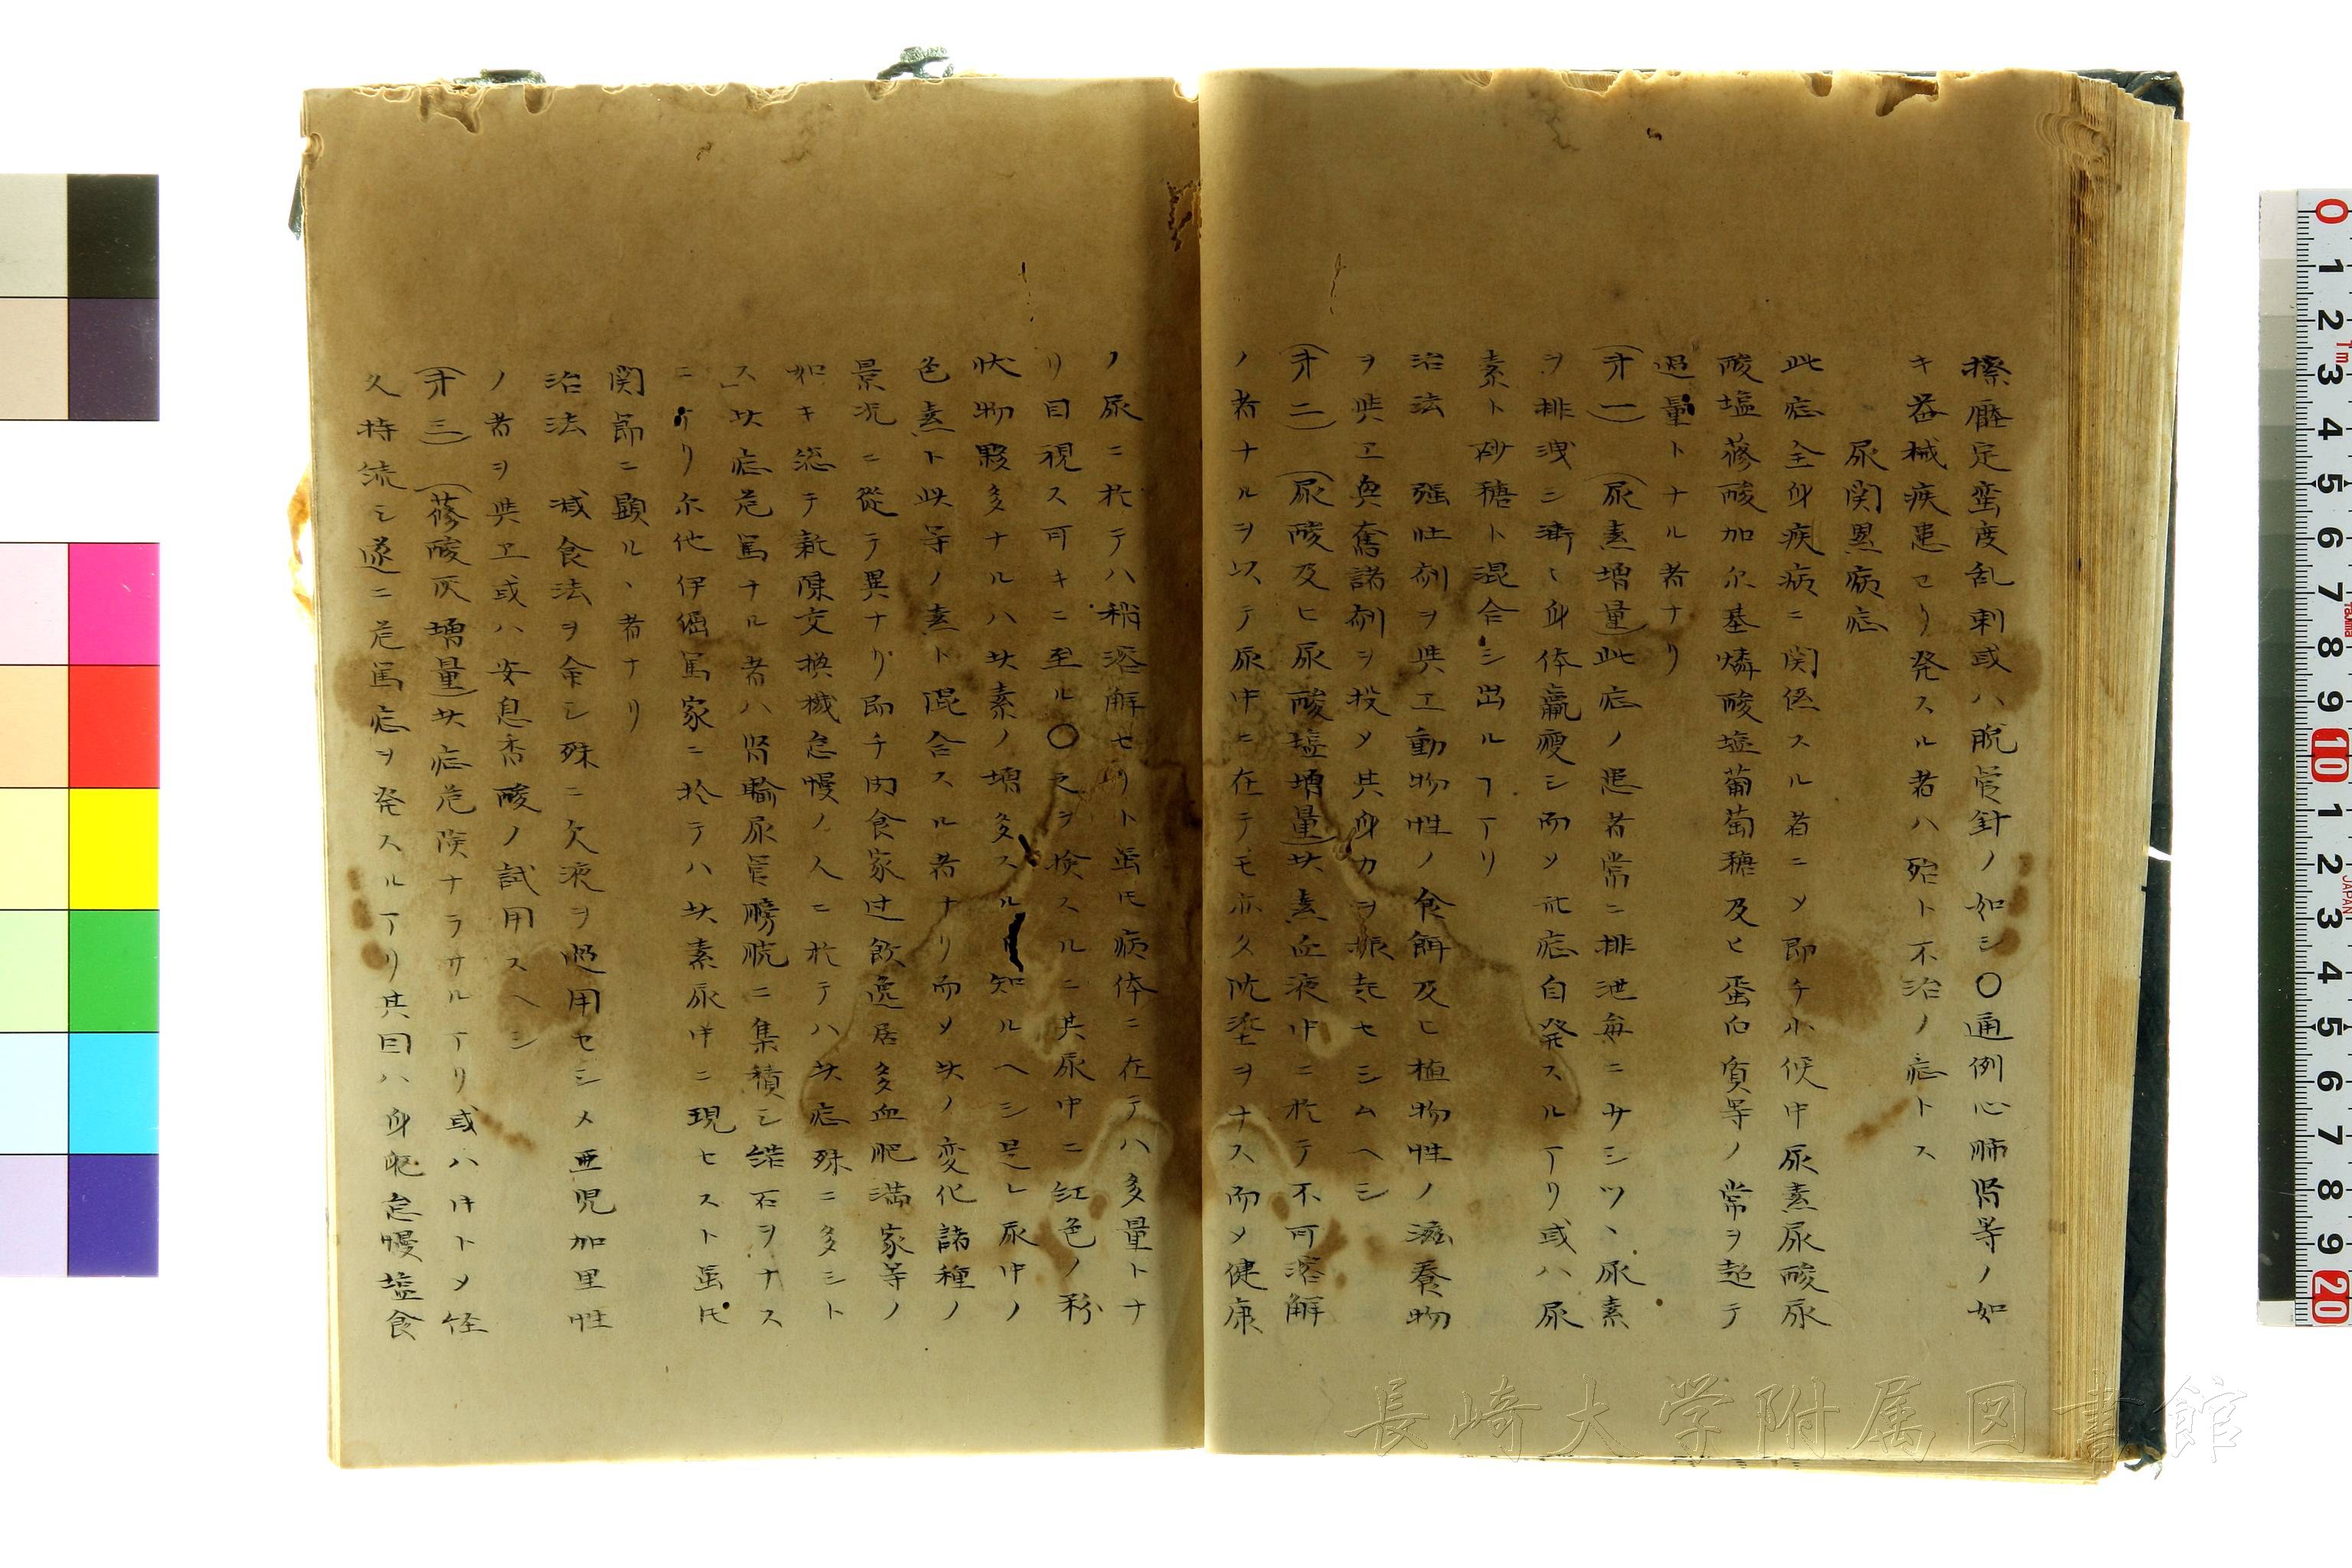 擦靨定蛮度乱刺或ハ脱管針ノ如シ〇通例心肺腎等ノ如
キ器械疾患ヨリ発スル者ハ殆ト不治ノ症トス
尿関累病症
此症全身疾病ニ関係スル者ニメ即チ小候中尿素尿酸尿
酸塩蓚酸加尓基燐酸塩葡萄糖及ヒ蛋白質等ノ常ヲ超テ
過量トナル者ナリ
(才一)(尿素増量)此症ノ患者常ニ排泄毎ニサシツヽ尿素
ヲ排洩シ漸々身体羸痩シ而メ此症自発スルアリ或ハ尿
素ト砂糖ト混合シ出ルヿアリ
治法 強壮剤ヲ與エ動物性ノ食餌及ヒ植物性ノ滋養物
ヲ與エ奥奮諸剤ヲ投メ其身力ヲ振起セシムヘシ
(才二)(尿酸及ヒ尿酸塩増量)此素血液中ニ於テ不可溶解
ノ者ナルヲ以テ尿中ニ在テモ亦久沈渣ヲナス而メ健康
ノ尿ニ於テハ稍溶解セリト虽氏病体ニ在テハ多量トナ
リ目視ス可キニ至ル〇之ヲ検スルニ其尿中ニ紅色ノ粉
状物夥多ナルハ此素ノ増多スル知ルヘシ是レ尿中ノ
色素ト此等ノ素ト混合スル者ナリ而メ此ノ変化諸種ノ
景况ニ從テ異ナリ即チ肉食家过飲逸居多血肥満家等ノ
如キ總テ新陳交換機怠慢ノ人ニ於テハ此症殊ニ多シト
ス」此症危篤ナル者ハ腎輸尿管膀胱ニ集積シ結石ヲナス
ニアリ尓他伊倔篤家ニ於テハ此素尿中ニ現ヒスト虽氏
関節ニ顕ルヽ者ナリ
治法 減食法ヲ命シ殊ニ欠液ヲ過用セシメ亜児加里性
ノ者ヲ與エ或ハ安息香酸ノ試用スヘシ
(才三)(蓚酸灰増量)此症危険ナラサルアリ或ハ時トメ径
久持続シ遂ニ危篤症ヲ発スルアリ其因ハ身躯怠慢塩食
長崎大学附属図書館